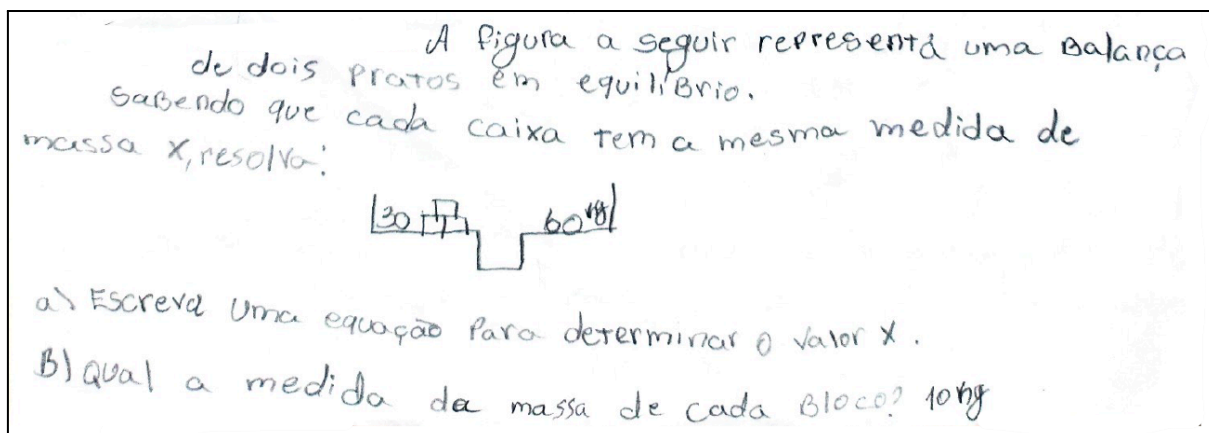 A figura a seguir representa uma Balança
de dois pratos em equilíBrio.
saBendo que cada caixa tem a mesma medida de
massa x, resolva:
30 60 kg
a) Escreva uma equação Para determinar o valor x.
B) Qual a medida da massa de cada Bloco? 10 kg